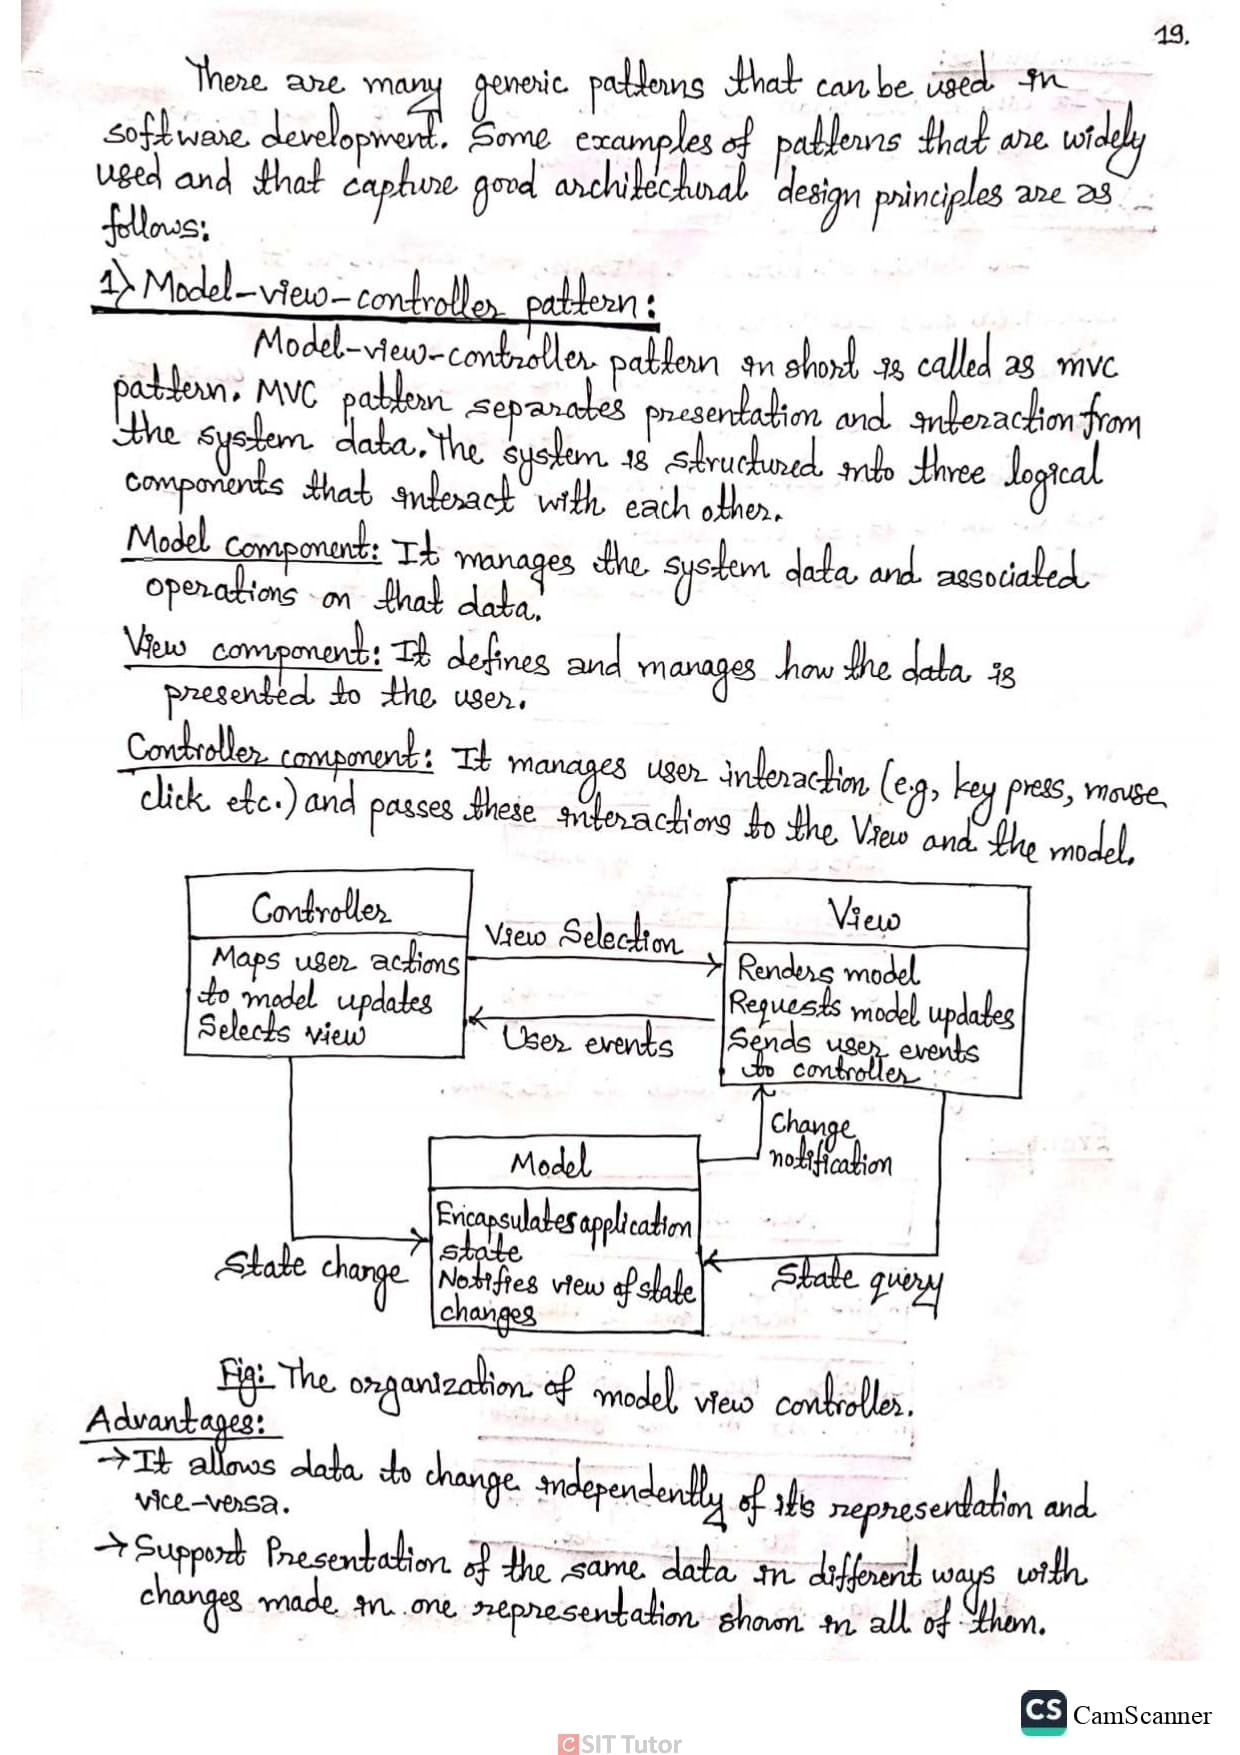 19.
There are many generic patterns that can be used in
software development. Some examples of patterns that are widely
used and that capture good architectural design principles are as
follows:
1) Model-view-controller pattern:
Model-view-controller pattern in short is called as MVC
pattern. MVC pattern separates presentation and interaction from
the system data. The system is structured into three logical
components that interact with each other.
Model component: It manages the system data and associated
operations on that data.
View component: It defines and manages how the data is
presented to the user.
Controller component: It manages user interaction (e.g, key press, mouse
click etc.) and passes these interactions to the View and the model.
Controller
Maps user actions
to model updates
Selects view
View Selection
User events
View
Renders model
Requests model updates
Sends user events
to controller
Change
notification
Model
Encapsulates application
state
Notifies view of state
changes
State change
State query
Fig: The organization of model view controller.
Advantages:
→ It allows data to change independently of it's representation and
vice-versa.
→ Support Presentation of the same data in different ways with
changes made in one representation shown in all of them.
CS CamScanner
CSIT Tutor